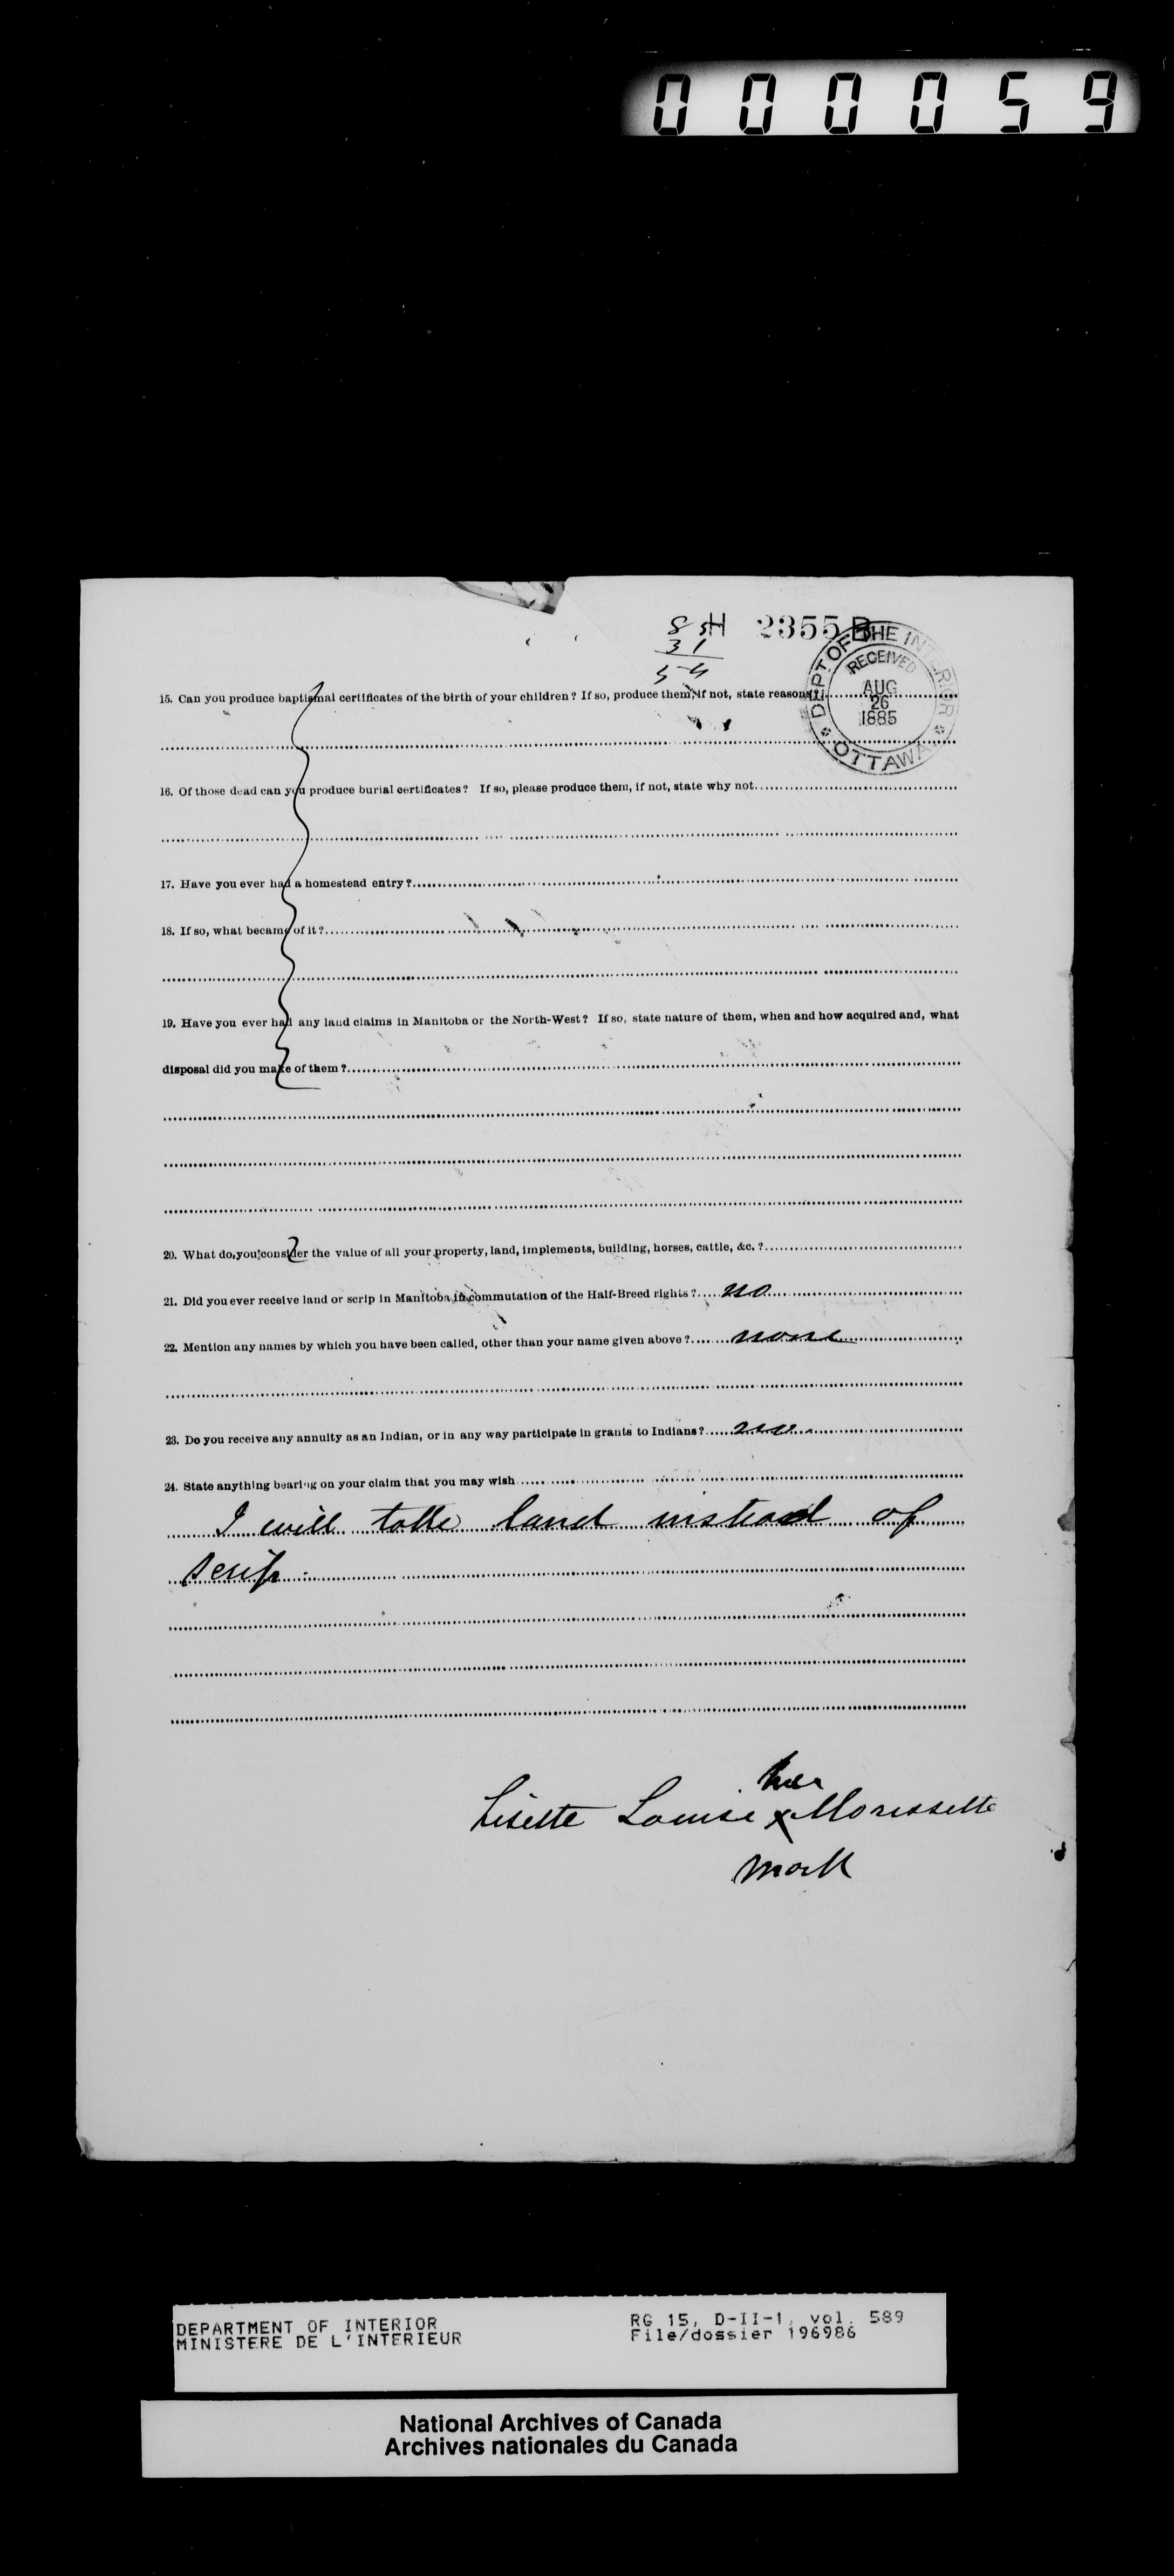 000059
H 2355 B
85
31
54
DEPT OF THE INTERIOR
RECEIVED
AUG
26
1885
OTTAWA
15. Can you produce baptismal certificates of the birth of your children? If so, produce them; if not, state reasons
16. Of those dead can you produce burial certificates? If so, please produce them, if not, state why not
17. Have you ever had a homestead entry?
18. If so, what became of it?
19. Have you ever had any land claims in Manitoba or the North-West? If so, state nature of them, when and how acquired and, what
disposal did you make of them?
20. What do you consider the value of all your property, land, implements, building, horses, cattle, &c.?
21. Did you ever receive land or scrip in Manitoba in commutation of the Half-Breed rights? no
22. Mention any names by which you have been called, other than your name given above? none
23. Do you receive any annuity as an Indian, or in any way participate in grants to Indians? no
24. State anything bearing on your claim that you may wish
I will take land instead of
scrip
her
Lisette Louise x Morissette
mark
DEPARTMENT OF INTERIOR
MINISTERE DE L'INTERIEUR
RG 15, D-II-1, vol. 589
File/dossier 196986
National Archives of Canada
Archives nationales du Canada